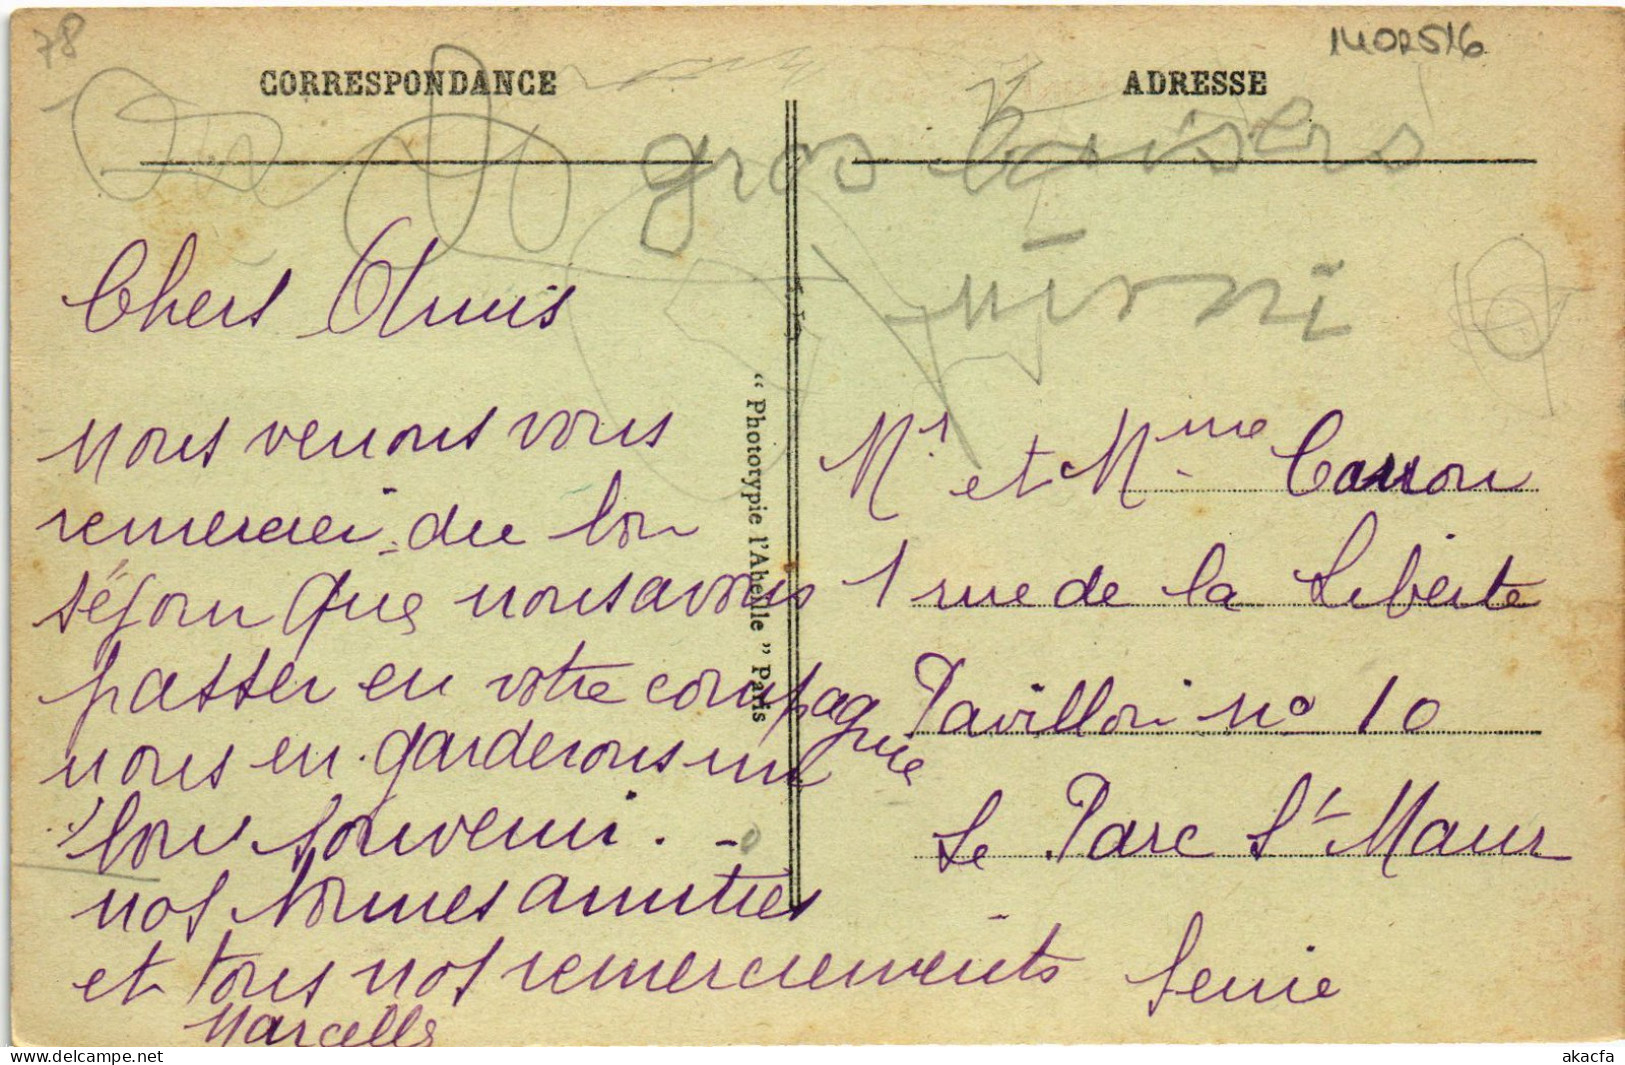 78
1402516
CORRESPONDANCE
ADRESSE
gros baisers
Chers Amis
nous venons vous
remercier du bon
séjour que nous avons
passer en votre compagnie
nous en garderons un
bon souvenir.
nos bonnes amitiés
et tous nos remerciements
Marcelle
"Phototypie l'Abeille" Paris
Mr et Mme Carron
1 rue de la Liberte
Pavillon no 10
Le Parc St Maur
Seine
www.delcampe.net
akacfa